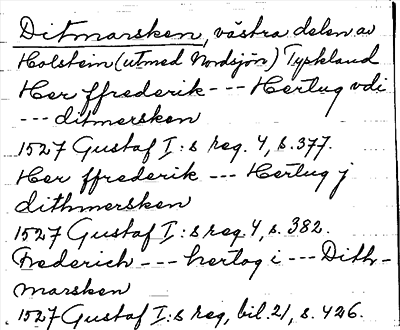 Ditmarsken, västra delen av
Holstein (utmed Nordsjön) Tyskland
Her ffrederik --- Hertug vdi
--- ditmersken
1527 Gustaf I:s reg. 4, s. 377.
Her ffrederik --- Hertug j
dithmersken
1527 Gustaf I:s reg. 4, s. 382.
Frederich --- hertog i --- Dith-
marsken
1527 Gustaf I:s reg, bil. 21, s. 426.